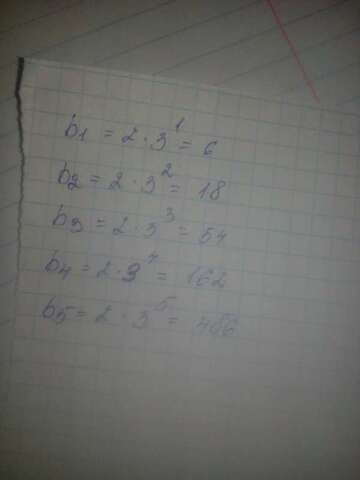 b1 = 2 · 3^1 = 6
b2 = 2 · 3^2 = 18
b3 = 2 · 3^3 = 54
b4 = 2 · 3^4 = 162
b5 = 2 · 3^5 = 486